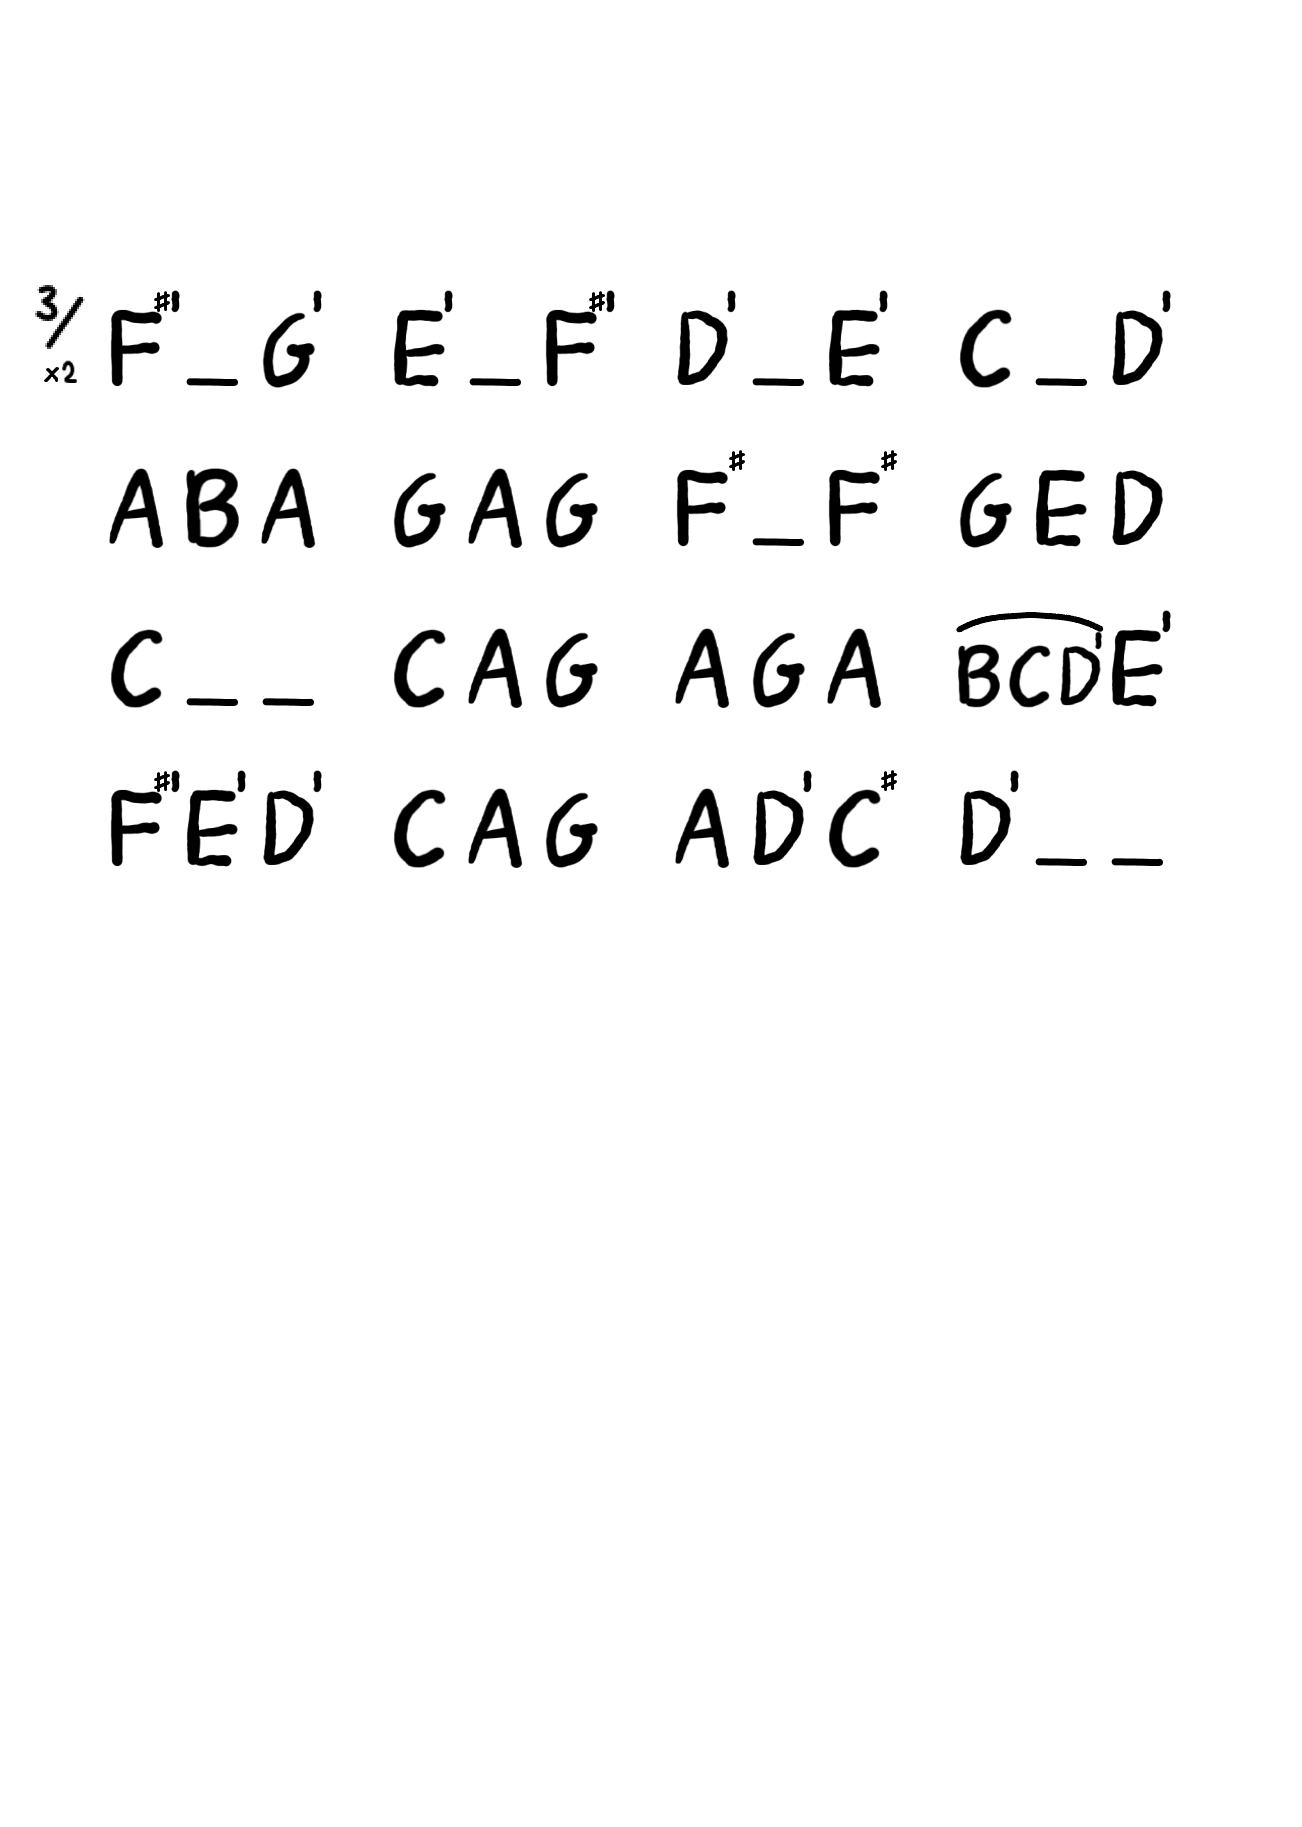 3/ x2 F#'_G' E'_F#' D'_E' C_D'
ABA GAG F#_F# GED
C_ _ CAG AGA BCD'E'
F#'E'D' CAG AD'C# D'_ _